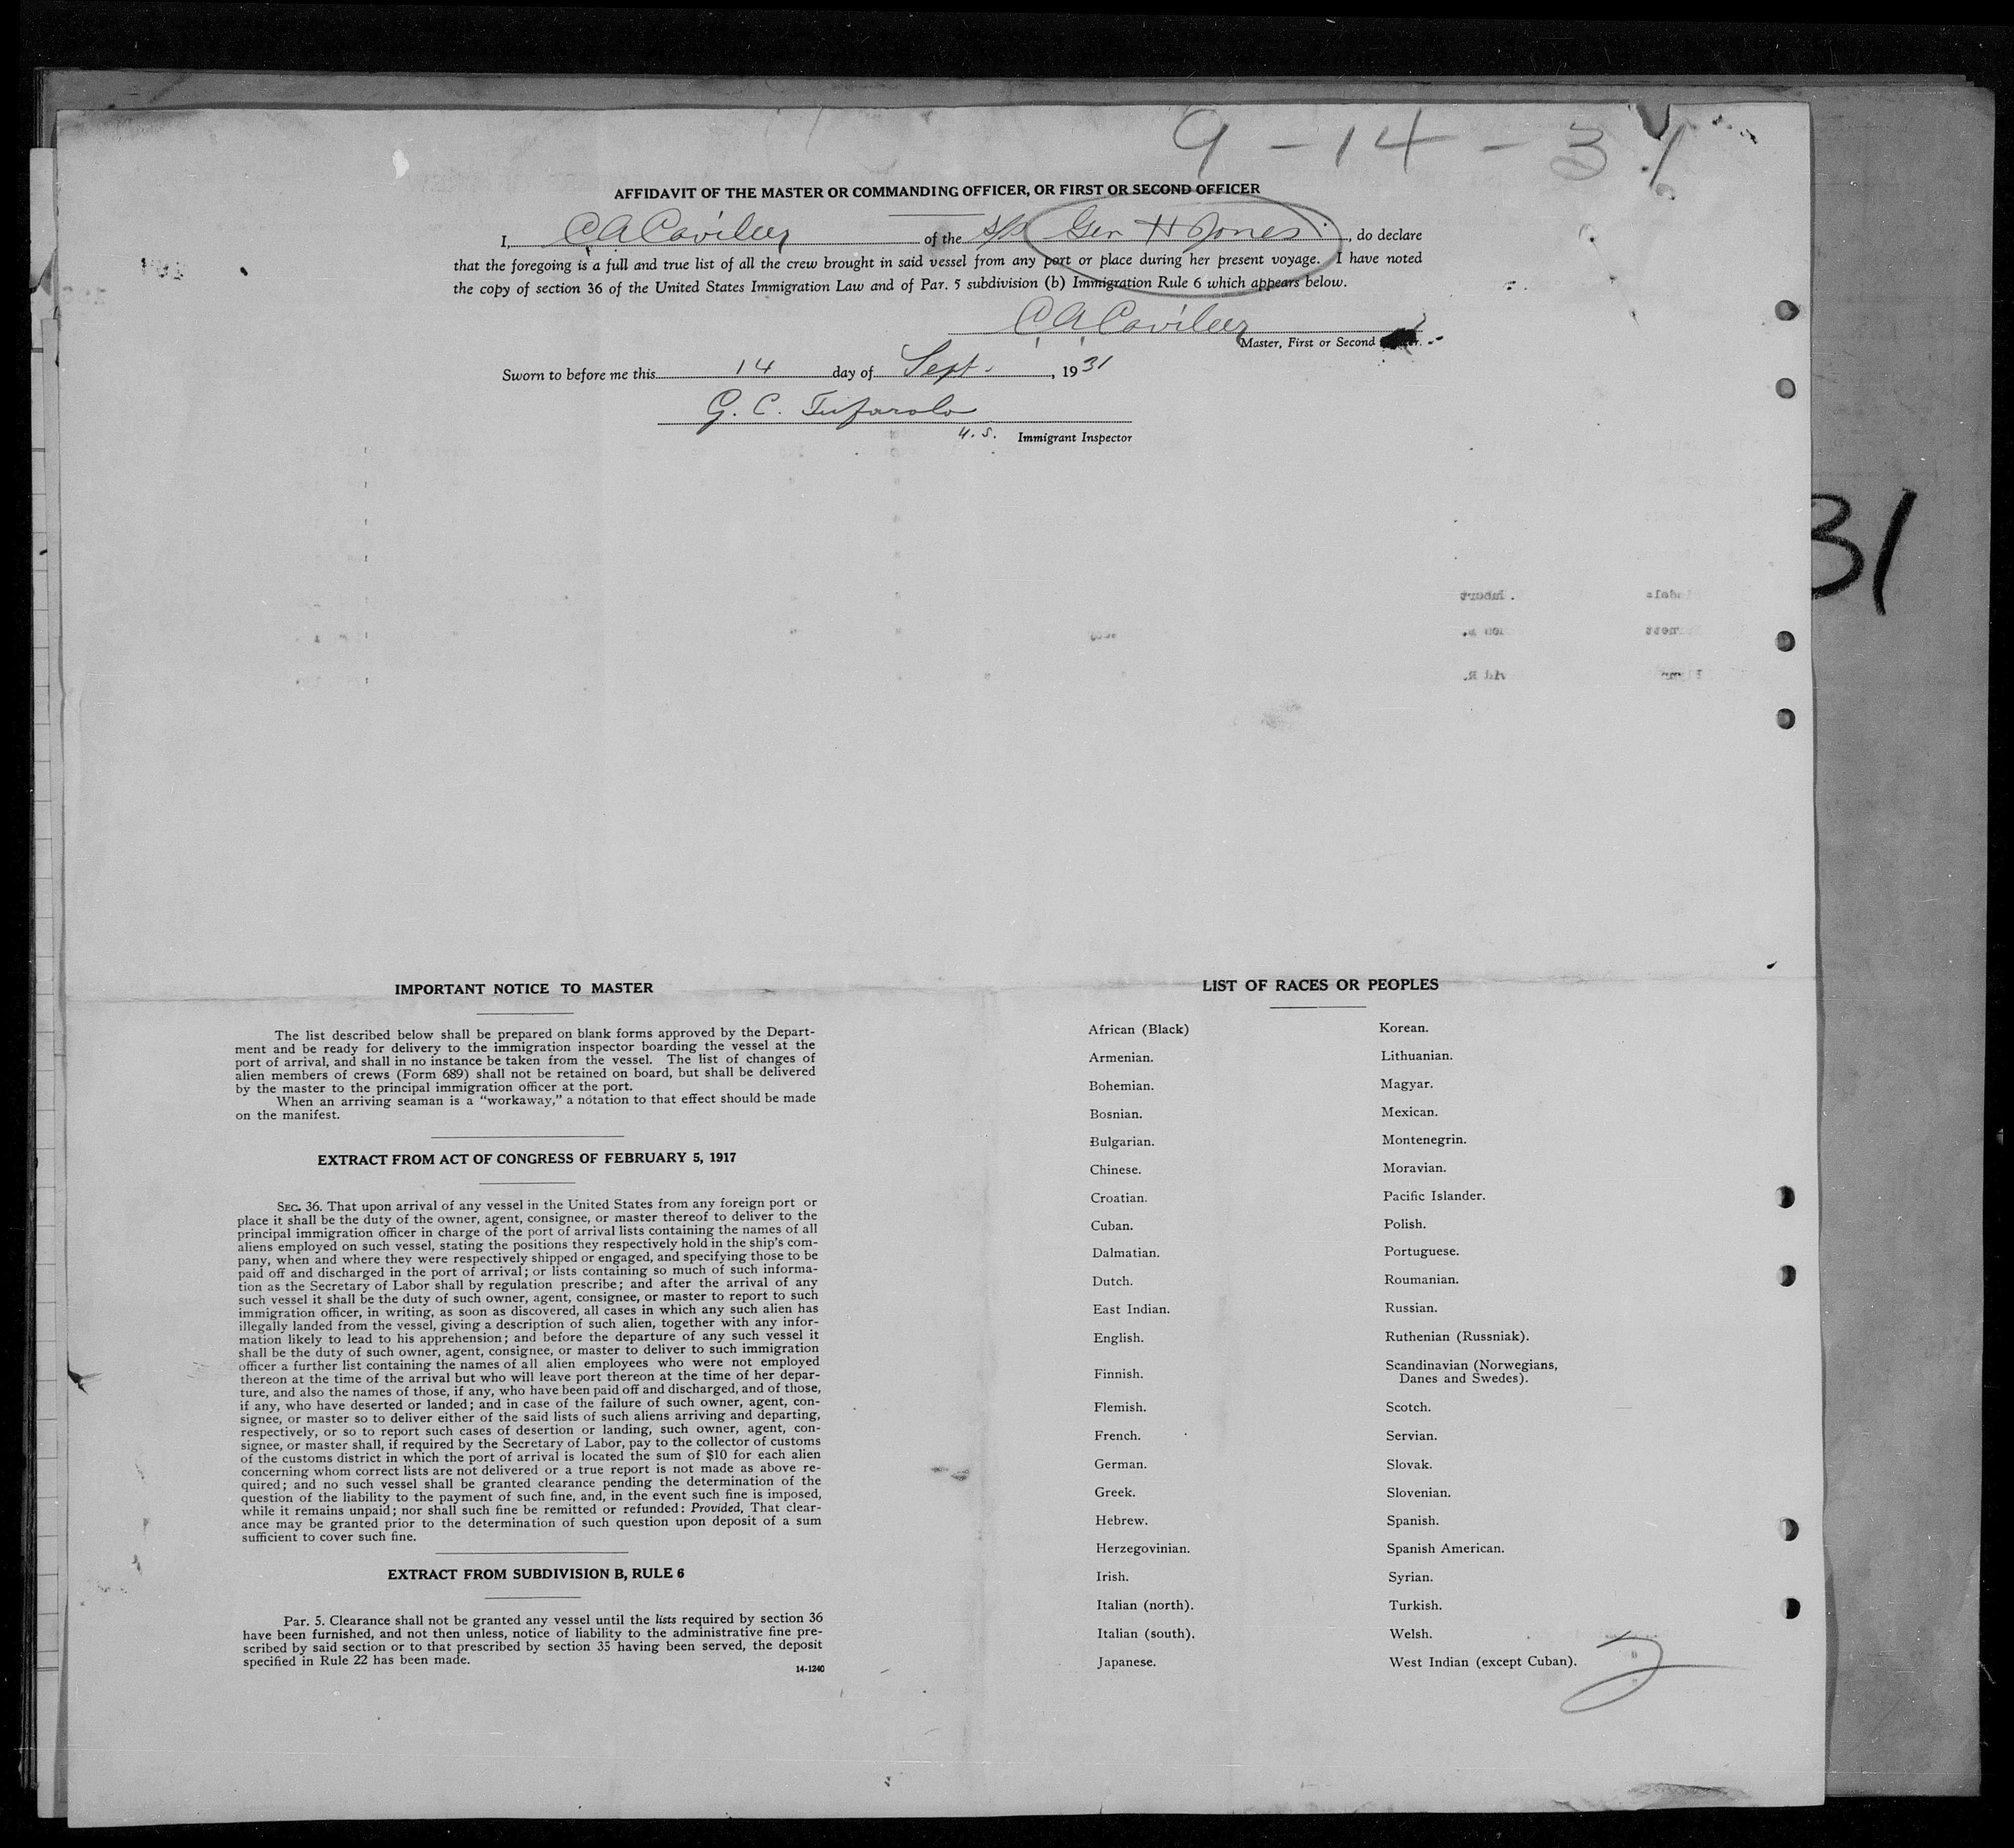 9 - 14 - 31
AFFIDAVIT OF THE MASTER OR COMMANDING OFFICER, OR FIRST OR SECOND OFFICER
I, C A Cavileer of the S/S Geo H Jones, do declare
that the foregoing is a full and true list of all the crew brought in said vessel from any port or place during her present voyage. I have noted
the copy of section 36 of the United States Immigration Law and of Par. 5 subdivision (b) Immigration Rule 6 which appears below.
C A Cavileer
Master, First or Second
Sworn to before me this 14 day of Sept., 1931
G. C. Tufarolo
U. S. Immigrant Inspector
31
IMPORTANT NOTICE TO MASTER
The list described below shall be prepared on blank forms approved by the Depart-
ment and be ready for delivery to the immigration inspector boarding the vessel at the
port of arrival, and shall in no instance be taken from the vessel. The list of changes of
alien members of crews (Form 689) shall not be retained on board, but shall be delivered
by the master to the principal immigration officer at the port.
When an arriving seaman is a "workaway," a notation to that effect should be made
on the manifest.
EXTRACT FROM ACT OF CONGRESS OF FEBRUARY 5, 1917
SEC. 36. That upon arrival of any vessel in the United States from any foreign port or
place it shall be the duty of the owner, agent, consignee, or master thereof to deliver to the
principal immigration officer in charge of the port of arrival lists containing the names of all
aliens employed on such vessel, stating the positions they respectively hold in the ship's com-
pany, when and where they were respectively shipped or engaged, and specifying those to be
paid off and discharged in the port of arrival; or lists containing so much of such informa-
tion as the Secretary of Labor shall by regulation prescribe; and after the arrival of any
such vessel it shall be the duty of such owner, agent, consignee, or master to report to such
immigration officer, in writing, as soon as discovered, all cases in which any such alien has
illegally landed from the vessel, giving a description of such alien, together with any infor-
mation likely to lead to his apprehension; and before the departure of any such vessel it
shall be the duty of such owner, agent, consignee, or master to deliver to such immigration
officer a further list containing the names of all alien employees who were not employed
thereon at the time of the arrival but who will leave port thereon at the time of her depar-
ture, and also the names of those, if any, who have been paid off and discharged, and of those,
if any, who have deserted or landed; and in case of the failure of such owner, agent, con-
signee, or master so to deliver either of the said lists of such aliens arriving and departing,
respectively, or so to report such cases of desertion or landing, such owner, agent, con-
signee, or master shall, if required by the Secretary of Labor, pay to the collector of customs
of the customs district in which the port of arrival is located the sum of $10 for each alien
concerning whom correct lists are not delivered or a true report is not made as above re-
quired; and no such vessel shall be granted clearance pending the determination of the
question of the liability to the payment of such fine, and, in the event such fine is imposed,
while it remains unpaid; nor shall such fine be remitted or refunded: Provided, That clear-
ance may be granted prior to the determination of such question upon deposit of a sum
sufficient to cover such fine.
EXTRACT FROM SUBDIVISION B, RULE 6
Par. 5. Clearance shall not be granted any vessel until the lists required by section 36
have been furnished, and not then unless, notice of liability to the administrative fine pre-
scribed by said section or to that prescribed by section 35 having been served, the deposit
specified in Rule 22 has been made.
14-1240
LIST OF RACES OR PEOPLES
African (Black)
Armenian.
Bohemian.
Bosnian.
Bulgarian.
Chinese.
Croatian.
Cuban.
Dalmatian.
Dutch.
East Indian.
English.
Finnish.
Flemish.
French.
German.
Greek.
Hebrew.
Herzegovinian.
Irish.
Italian (north).
Italian (south).
Japanese.
Korean.
Lithuanian.
Magyar.
Mexican.
Montenegrin.
Moravian.
Pacific Islander.
Polish.
Portuguese.
Roumanian.
Russian.
Ruthenian (Russniak).
Scandinavian (Norwegians,
Danes and Swedes).
Scotch.
Servian.
Slovak.
Slovenian.
Spanish.
Spanish American.
Syrian.
Turkish.
Welsh.
West Indian (except Cuban).